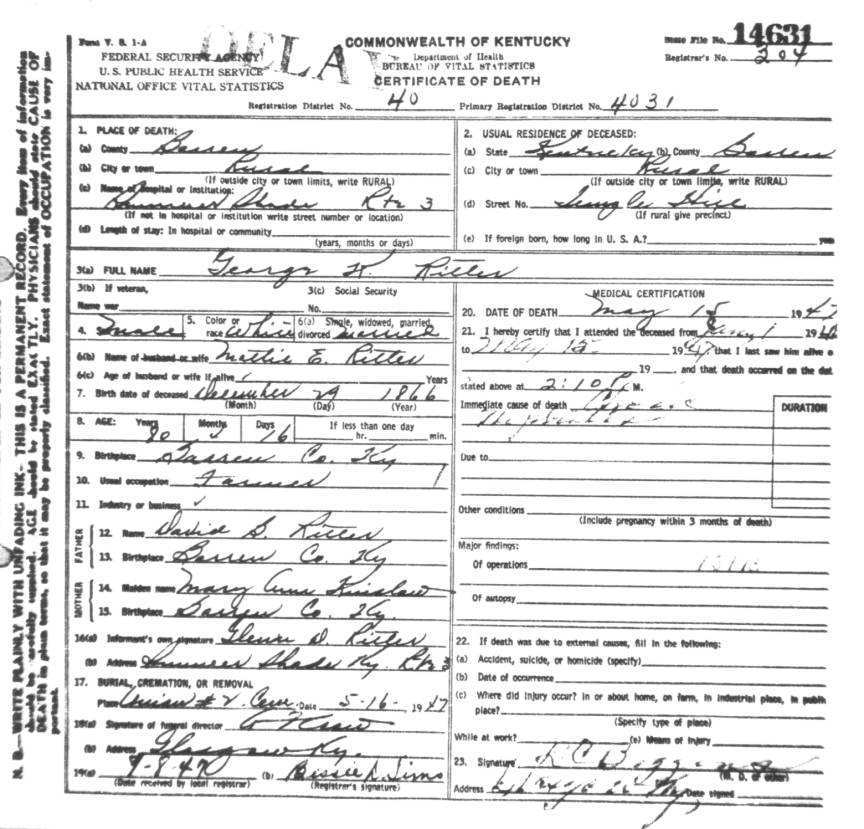 Form V. S. 1-A
DELA
COMMONWEALTH OF KENTUCKY
State File No. 14631
FEDERAL SECURITY AGENCY
Department of Health
Registrar's No. 204
U. S. PUBLIC HEALTH SERVICE
BUREAU OF VITAL STATISTICS
NATIONAL OFFICE VITAL STATISTICS
CERTIFICATE OF DEATH
Registration District No. 40 Primary Registration District No. 4031
N. B.—WRITE PLAINLY WITH UNFADING INK—THIS IS A PERMANENT RECORD. Every item of information
should be carefully supplied. AGE should be stated EXACTLY. PHYSICIANS should state CAUSE OF
DEATH in plain terms, so that it may be properly classified. Exact statement of OCCUPATION is very im-
portant.
1. PLACE OF DEATH:
(a) County Barren
(b) City or town Rural
(If outside city or town limits, write RURAL)
(c) Name of hospital or institution:
Summer Shade Rte 3
(If not in hospital or institution write street number or location)
(d) Length of stay: In hospital or community
(years, months or days)
2. USUAL RESIDENCE OF DECEASED:
(a) State Kentucky (b) County Barren
(c) City or town Rural
(If outside city or town limits, write RURAL)
(d) Street No. Temple Hill
(If rural give precinct)
(e) If foreign born, how long in U. S. A.?
3(a) FULL NAME George Ritter
3(b) If veteran,
Name war
3(c) Social Security
No.
4. Male 5. Color or race White 6(a) Single, widowed, married, divorced Married
6(b) Name of husband or wife Mattie E. Ritter
6(c) Age of husband or wife if alive Years
7. Birth date of deceased December 29 1866
(Month) (Day) (Year)
8. AGE: Years 80 Months 4 Days 16 If less than one day
hr. min.
9. Birthplace Barren Co. Ky
10. Usual occupation Farmer
11. Industry or business
FATHER
12. Name David S. Ritter
13. Birthplace Barren Co. Ky
MOTHER
14. Maiden name Mary Ann Kinslow
15. Birthplace Barren Co. Ky.
16(a) Informant's own signature Glenn D. Ritter
(b) Address Summer Shade Ky. Rte 3
17. BURIAL, CREMATION, OR REMOVAL
Place Union # 2 Cem. Date 5-16- 1947
18(a) Signature of funeral director
(b) Address Glasgow Ky.
19(a) 9-8-47 (b) Bessie D. Sims
(Date received by local registrar) (Registrar's signature)
MEDICAL CERTIFICATION
20. DATE OF DEATH May 15 1947
21. I hereby certify that I attended the deceased from
to May 15 1947 that I last saw him alive o
19 and that death occurred on the dat
stated above at 2:10 P M.
Immediate cause of death
DURATION
Due to
Other conditions
(Include pregnancy within 3 months of death)
Major findings:
Of operations
Of autopsy
22. If death was due to external causes, fill in the following:
(a) Accident, suicide, or homicide (specify)
(b) Date of occurrence
(c) Where did injury occur? In or about home, on farm, in industrial place, in public
place?
(Specify type of place)
While at work? (e) Means of Injury
23. Signature
(M. D. or other)
Address Date signed